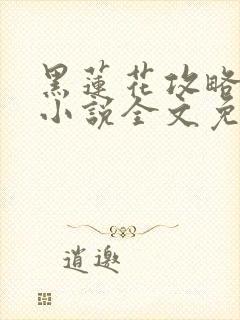 黑蓮花攻略
小說全文免
逍邀